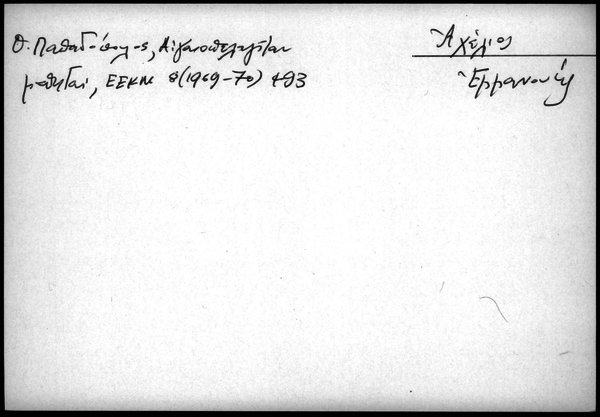 Θ. Παπαδόπουλος, Αἰγαιοπελαγῖται
μαθηταί, ΕΕΚΜ 8(1969-70) 493
Ἀχέλιος
Ἐμμανουήλ